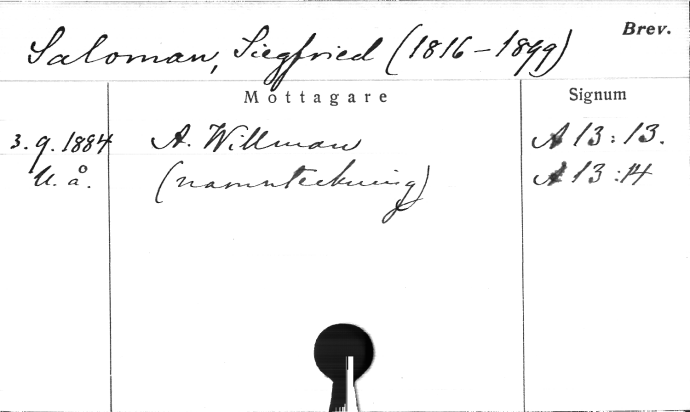 Brev.
Saloman, Siegfried (1816-1899)
Mottagare Signum
3.9.1884 A. Willman A 13:13.
U. å. (namnteckning) A 13:14